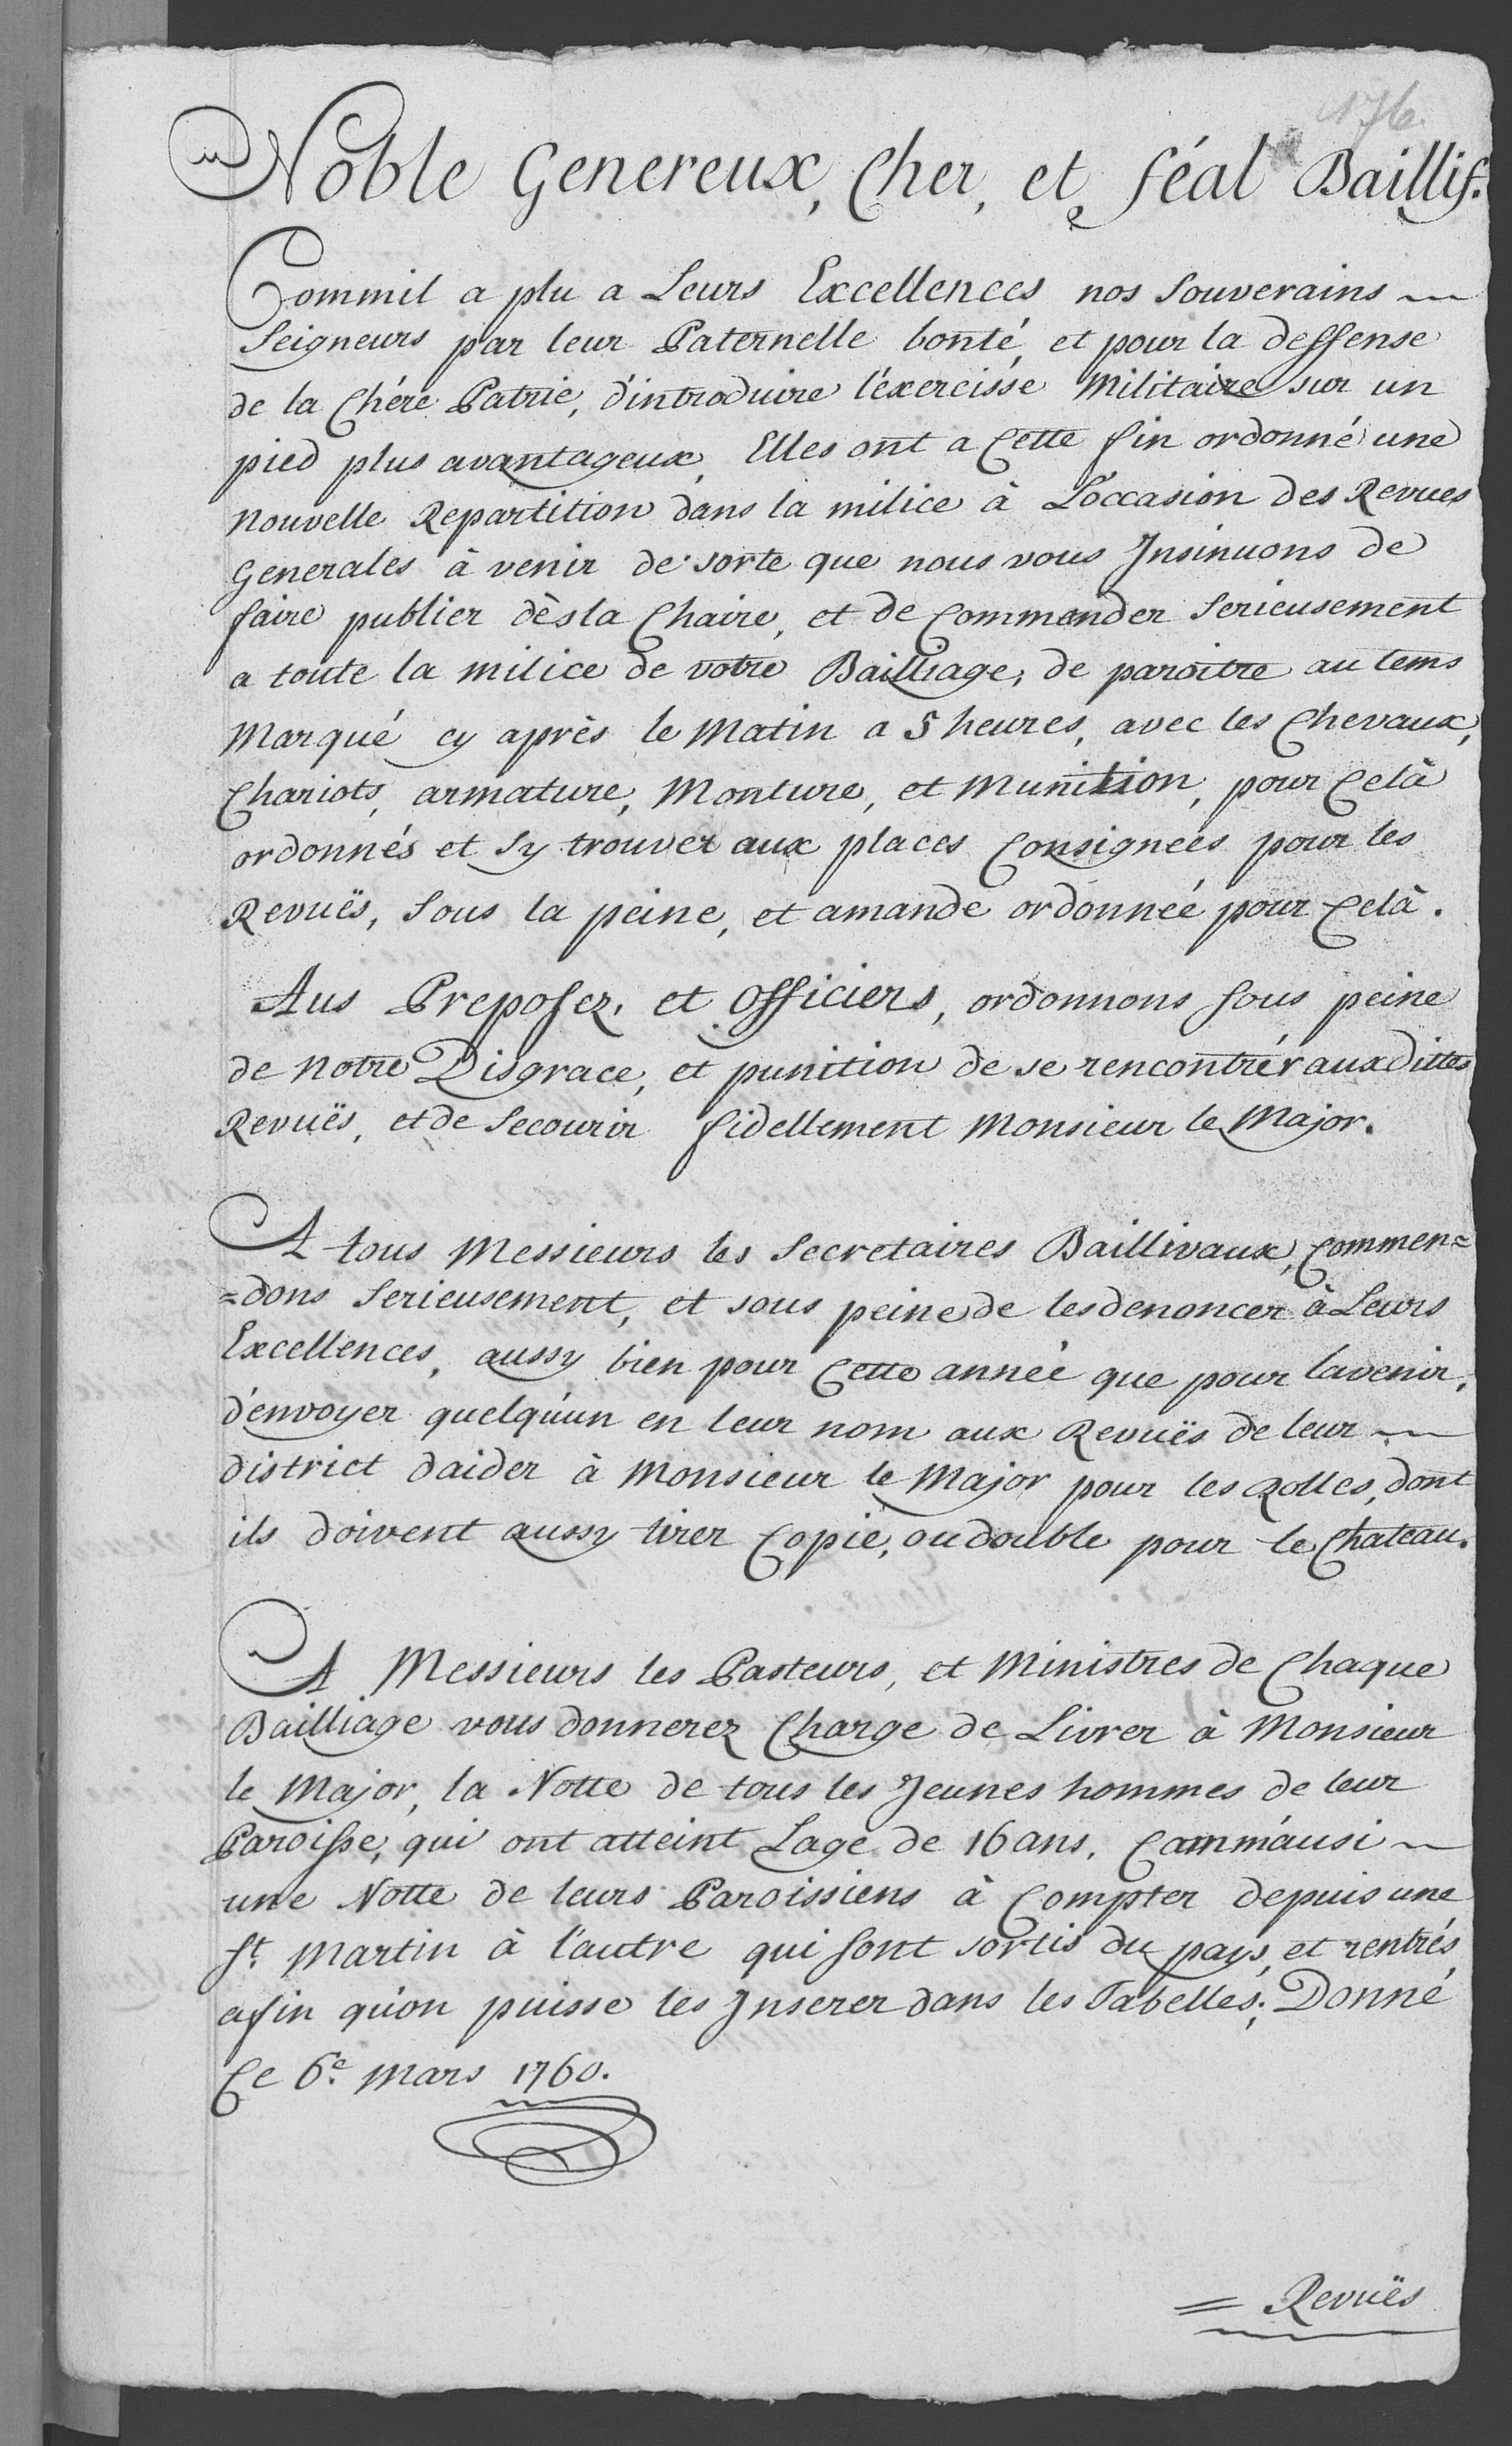 176
Noble Genereux, Cher, et féal Baillif.
Commil a plu a Leurs Excellences nos Souverains
Seigneurs par leur Paternelle bonté, et pour la deffense
de la Chére Patrie, d'introduire l'éxercisse Militaire sur un
pied plus avantageux, Elles ont a Cette fin ordonné une
nouvelle Repartition dans la milice à L'occasion des Revues
Generales à venir de sorte que nous vous Insinuons de
faire publier dès la Chaire, et de Commender Serieusement
a toute la milice de votre Bailliage, de paroitre au tems
Marqué cy après le Matin a 5 heures, avec les Chevaux,
Chariots, armature, Monture, et Munition, pour Celà
ordonnés et Sy trouver aux places Consignées pour les
Revuës, Sous la peine, et amande ordonnée pour Celà.
Aus Preposez. et Officiers, ordonnons sous peine
de Notre Disgrace, et punition de se rencontrér aux dittes
Revuës, et de Secourir fidellement Monsieur le Major.
A tous Messieurs les Secretaires Baillivaux, Commen=
=dons Serieusement, et sous peine de les denoncer à Leurs
Excellences, aussy bien pour Cette année que pour lavenir,
d'envoyer quelqu'un en leur nom aux Revuës de leur
district daider à Monsieur le Major pour les Rolles, dont
ils doivent aussy tirer Copie, ou double pour le Chateau.
A Messieurs les Pasteurs, et Ministres de Chaque
Bailliage vous donnerez Charge de Livrer à Monsieur
le Major, la Notte de tous les Jeunes hommes de leur
Paroisse, qui ont atteint Lage de 16 ans, Camm'ausi
une Notte de leurs Paroissiens à Compter depuis une
St. Martin à l'autre qui sont sortis du pays, et rentrés,
afin qu'on puisse les Inserer dans les Tabelles; Donné
Ce 6e. Mars 1760.
= Revuës